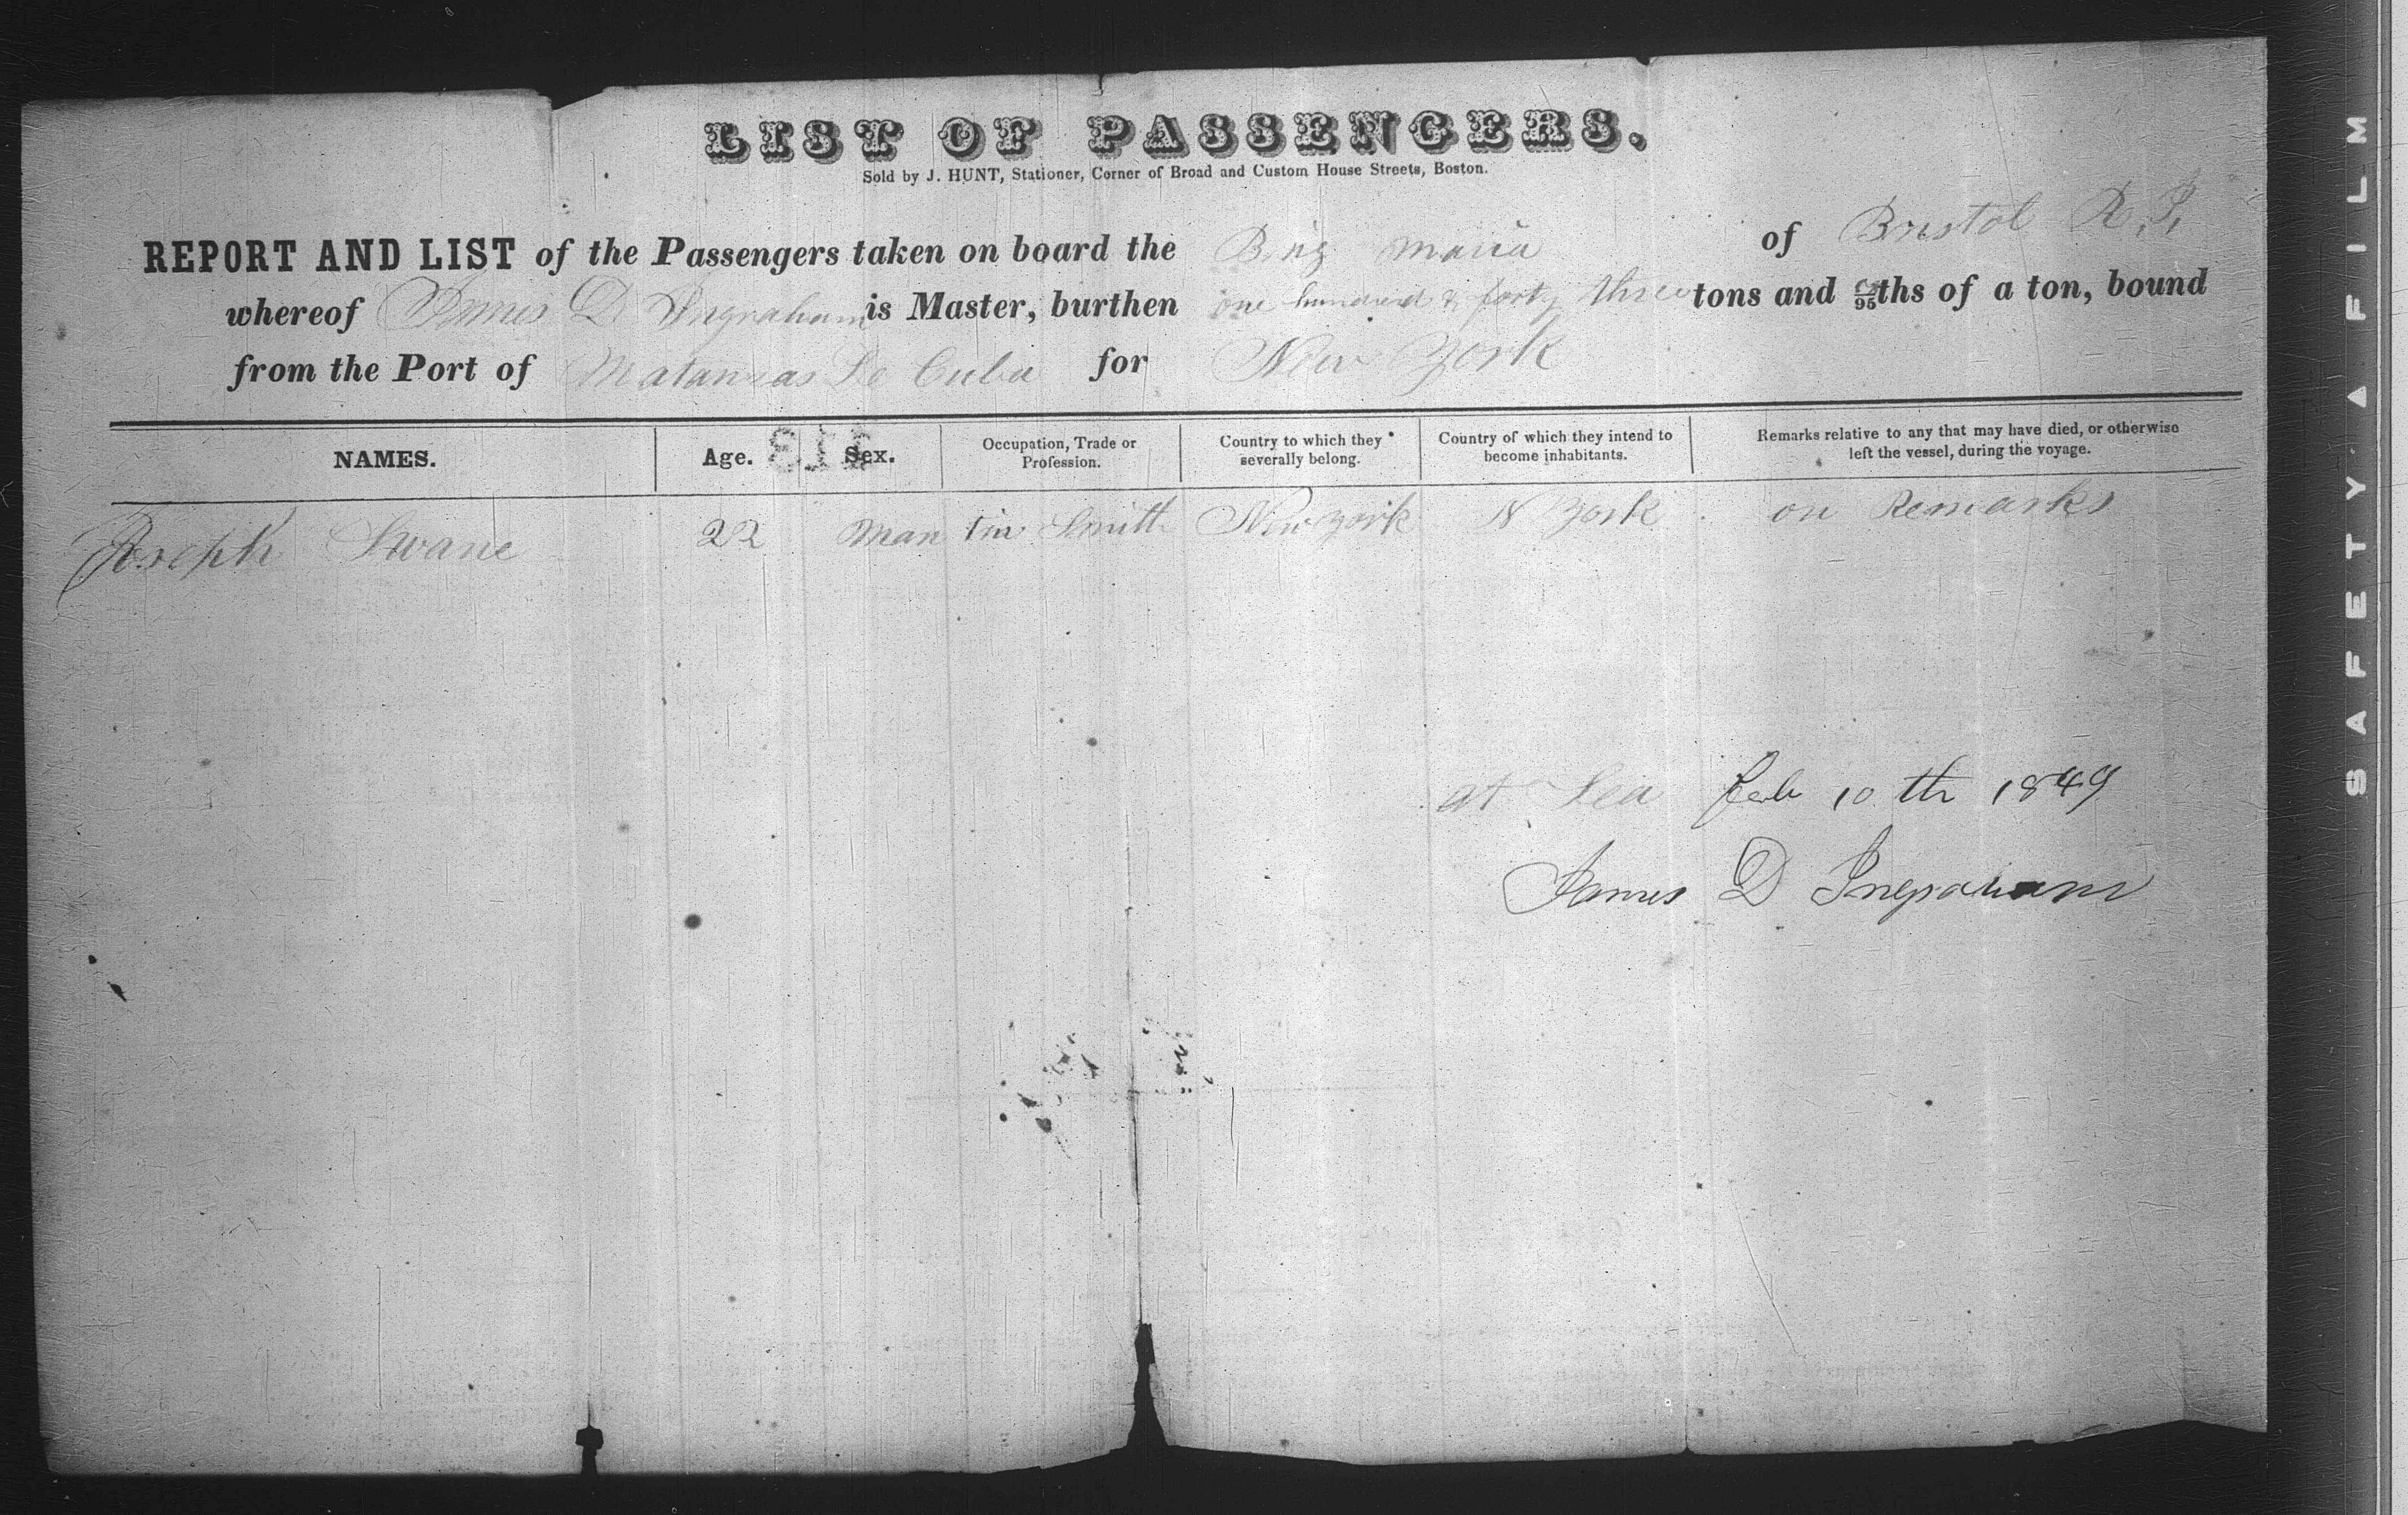 LIST OF PASSENGERS.
Sold by J. HUNT, Stationer, Corner of Broad and Custom House Streets, Boston.
REPORT AND LIST of the Passengers taken on board the Brig Maria of Bristol R. I,
whereof James D Ingraham is Master, burthen one hundred & forty three tons and /95ths of a ton, bound
from the Port of Matanzas De Cuba for New York
NAMES. Age. Sex. Occupation, Trade or Profession. Country to which they severally belong. Country of which they intend to become inhabitants. Remarks relative to any that may have died, or otherwise left the vessel, during the voyage.
Joseph Swane 22 Man tin Smith New York N York on Remarks
at Sea feb 10 th 1849
James D Ingraham
SAFETY FILM